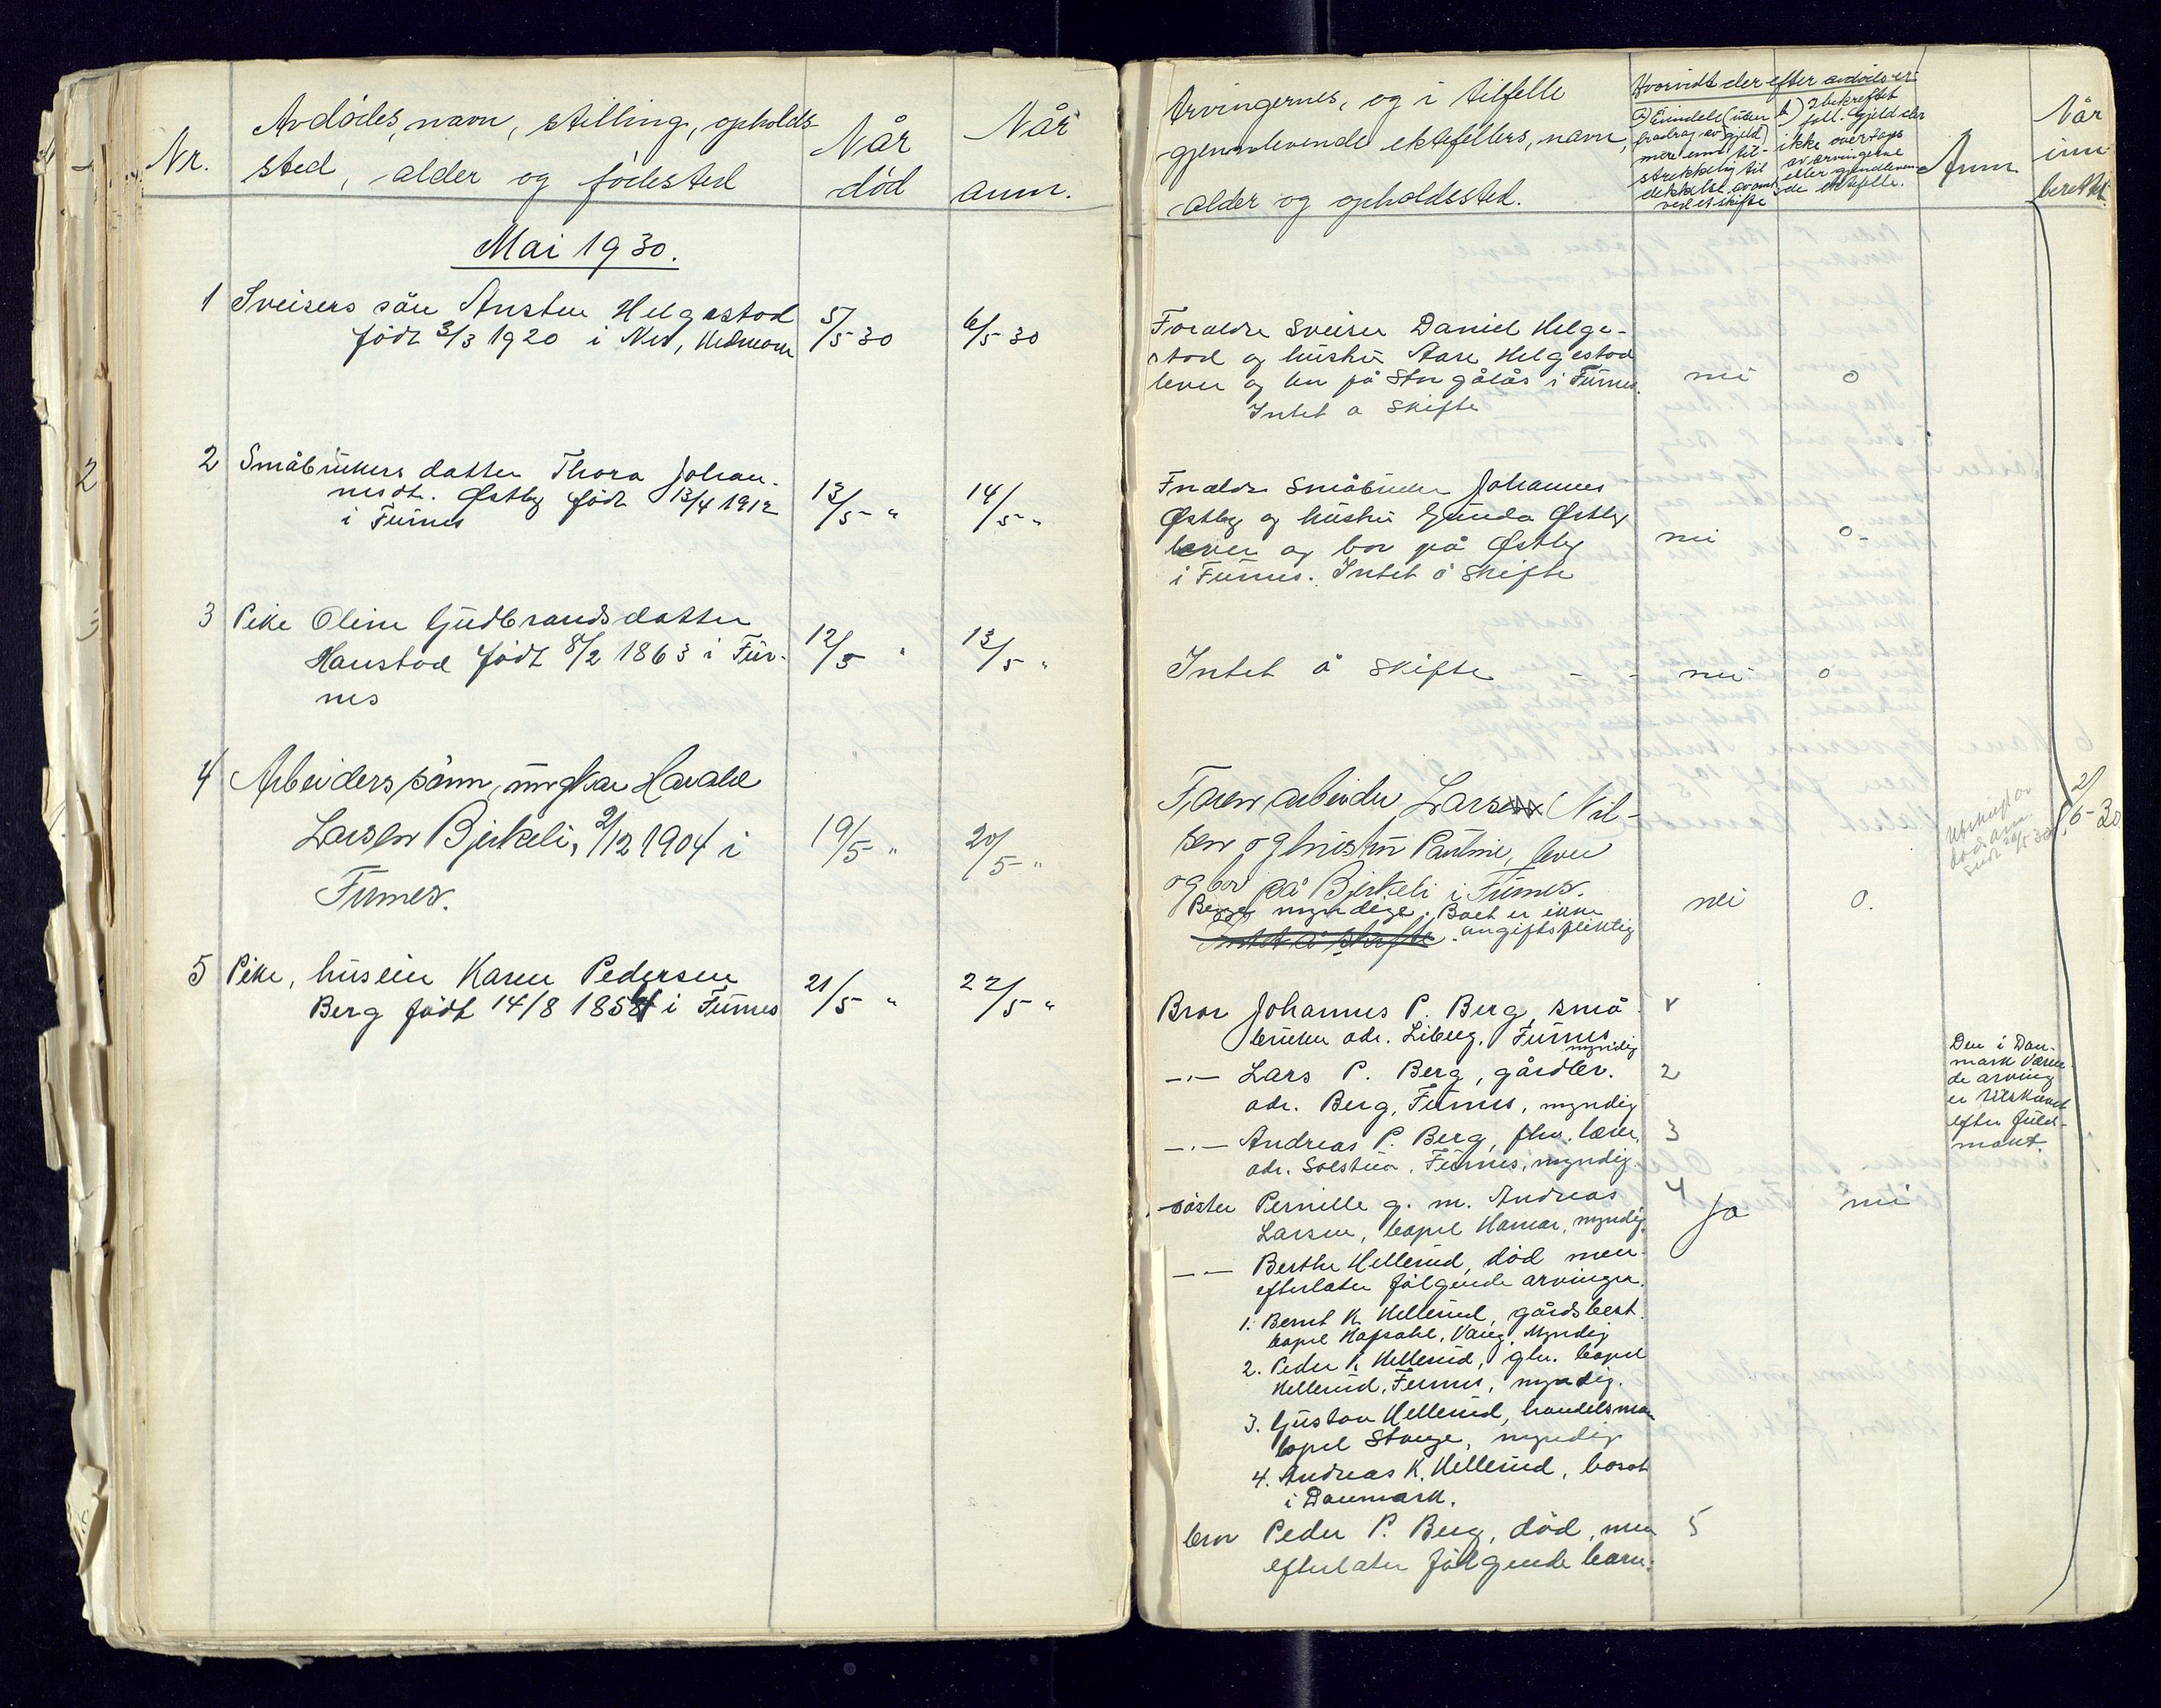 Nr.
Avdödes, navn, stilling, opholds-
sted, alder og födested
Når
död
Når
anm.
Mai 1930.
1 Sveisers sön Austen Helgestad
födt 3/3 1920 i Nes, Hedmark
5/5 30
6/5 30
2 Småbrukers datter Thora Johan-
nesdt. Østby födt 13/4 1912
i Furnes
13/5 "
14/5 "
3 Pike Oline Gudbrandsdatter
Hanstad födt 8/2 1863 i Fur-
nes
12/5 "
13/5 "
4 Arbeiders sönn, ungkar Harald
Larsen Bjerkeli, 2/12 1904 i
Furnes.
19/5 "
20/5 "
5 Pike, huseier Karen Pedersen
Berg födt 14/8 1854 i Furnes
21/5 "
22/5 "
Arvingernes, og i tilfelle
gjennlevende ektefellers, navn,
alder og opholdssted.
Hvorvidt der efter avdöde er
a) Eiendele (uten
fradrag av gjeld)
mere enn til-
strekkelig til
dekkelse av omk.
ved et skifte
b) I bekreftet
fall. Gjeld der
ikke overtas
av arvingerne
eller gjenleven-
de ektefelle.
Anm
Når
inn
berettet.
Foreldre Sveiser Daniel Helge-
stad og hustru Aase Helgestad
lever og bor på Stor gålås i Furnes.
Intet a skifte
nei
0
Foreldre Småbruker Johannes
Østby og hustru Gunda Østby
lever og bor på Østby
i Furnes. Intet å skifte
nei
0-
Intet å skifte - - nei 0
Foren arbeider Lars Nil-
sen og hustru Pauline, lever
og bor på Bjerkeli i Furnes.
Begge myndige. Boet er ikke
Intet å skifte. avgiftspliktig
nei
0.
2/6-30
Bror Johannes P. Berg, små-
bruker adr. Liberg, Furnes
myndig
1
-"- Lars P. Berg, gårdbr.
adr. Berg, Furnes, myndig
2
-"- Andreas P. Berg, fhv. lærer,
adr. Solstua, Furnes, myndig
3
söster Pernille g. m. Andreas
Larsen, bopel Hamar, myndig.
4
Ja
nei
-"- Berthe Hellerud, död men
efterlater fölgende arvinger.
1. Bernt K. Hellerud, gårdsbest.
bopel Hafsahl, Vang. Myndig
2. Peder K. Hellerud, gbr. bopel
Hellerud, Furnes, myndig.
3. Gustav Hellerud, handelsman
bopel Stange, myndig
4. Andreas K. Hellerud, bosat
i Danmark.
bror Peder P. Berg, död, men
efterlater fölgende barn:
5
Den i Dan-
mark væren-
de arving
er tilskrevet
efter full-
makt.